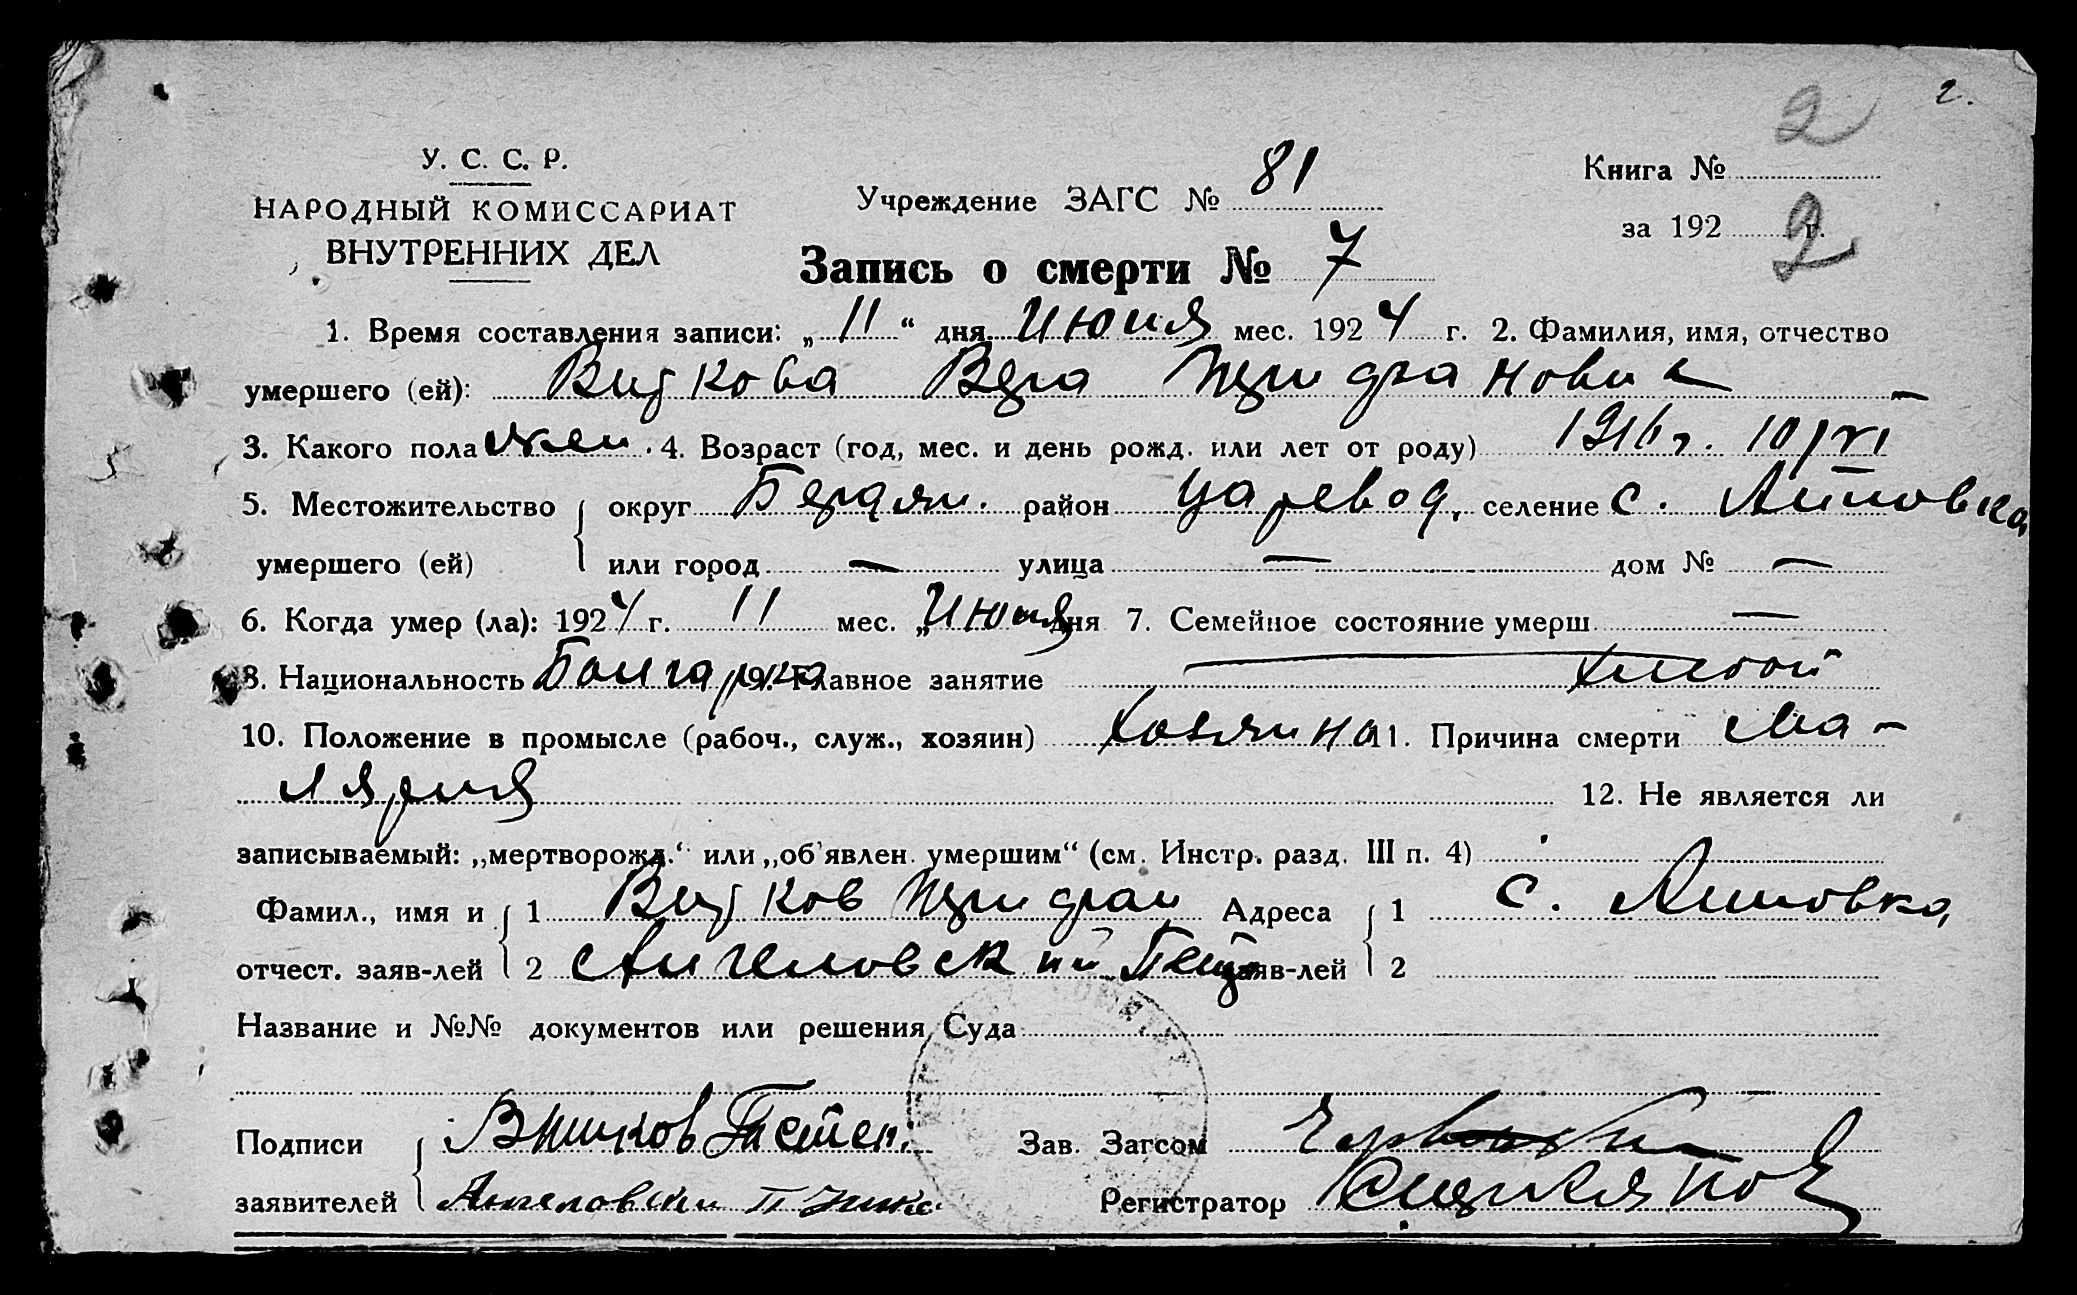 2.
2
У. С. С. Р.
НАРОДНЫЙ КОМИССАРИАТ
ВНУТРЕННИХ ДЕЛ
Учреждение ЗАГС № 81
Книга №
за 192 г.
2
Запись о смерти № 7
1. Время составления записи: „ 11 “ дня Июня мес. 1924 г. 2. Фамилия, имя, отчество
умершего (ей): Вера
3. Какого пола жен. 4. Возраст (год, мес. и день рожд. или лет от роду) 1916 г. 10/VI
5. Местожительство округ Бердян. район Царевод. селение с. Липовка
умершего (ей) или город — улица — дом № —
6. Когда умер (ла): 1924 г. 11 мес. „ Июня дня 7. Семейное состояние умерш —
8. Национальность Болгарка 9. Главное занятие
10. Положение в промысле (рабоч., служ., хозяин) Хозяин 11. Причина смерти Ма-
лярия 12. Не является ли
записываемый: „мертворожд.“ или „об'явлен. умершим“ (см. Инстр. разд. III п. 4)
Фамил., имя и 1 Адреса 1 с. Липовка
отчест. заяв-лей 2 Ангеловский заяв-лей 2
Название и №№ документов или решения Суда
Подписи Зав. Загсом
заявителей Ангеловски П Регистратор